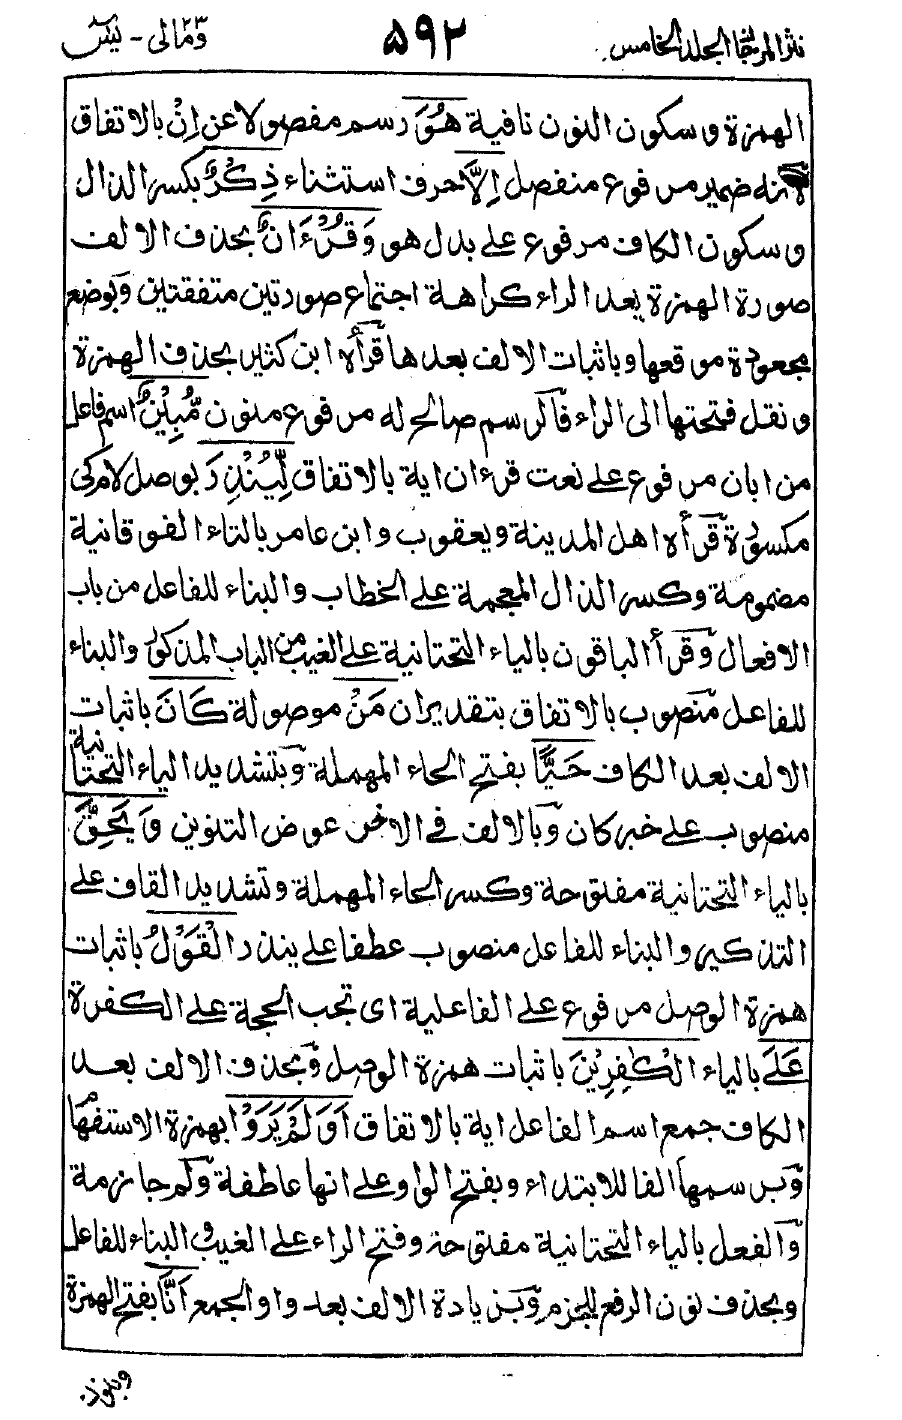 نثر المرجان المجلد الخامس
۵۹۲
ومالى ۲۳ - يٰس
الهمزة وسكون النون نافية هُوَ رسم مفصولا عن اِنْ بالاتفاق
لانه ضمير مرفوع منفصل اِلَّا حرف استثناء ذِكْرٌ بكسر الذال
وسكون الكاف مرفوع على بدل هو وَقُرْءَانٌ بحذف الالف
صورة الهمزة بعد الراء كراهة اجتماع صورتين متفقتين وبوضع
مجعودة موقعها وباثبات الالف بعدها قرأه ابن كثير بحذف الهمزة
ونقل فتحتها الى الراء فالرسم صالح له مرفوع منون مُّبِيْنٌ اسم فاعل
من ابان مرفوع على نعت قرءان اية بالاتفاق لِّيُنْذِرَ بوصل لام كى
مكسورة قرأه اهل المدينة ويعقوب وابن عامر بالتاء الفوقانية
مضمومة وكسر الذال المعجمة على الخطاب والبناء للفاعل من باب
الافعال وقرأ الباقون بالياء التحتانية على الغيب من الباب المذكور والبناء
للفاعل منصوب بالاتفاق بتقدير ان مَنْ موصولة كَانَ باثبات
الالف بعد الكاف حَيًّا بفتح الحاء المهملة وبتشديد الياء التحتانية
منصوب على خبر كان وبالالف فى الاخر عوض التنوين وَيَحِقَّ
بالياء التحتانية مفتوحة وكسر الحاء المهملة وتشديد القاف على
التذكير والبناء للفاعل منصوب عطفا على ينذر الْقَوْلُ باثبات
همزة الوصل مرفوع على الفاعلية اى تجب الحجة على الكفرة
عَلَى بالياء الْكٰفِرِيْنَ باثبات همزة الوصل وبحذف الالف بعد
الكاف جمع اسم الفاعل اية بالاتفاق اَوَلَمْ يَرَوْا بهمزة الاستفهام
وبرسمها الفا للابتداء وبفتح الواو على انها عاطفة ولم جازمة
والفعل بالياء التحتانية مفتوحة وفتح الراء على الغيب والبناء للفاعل
وبحذف نون الرفع للجزم وبزيادة الالف بعد واو الجمع اَنَّا بفتح الهمزة